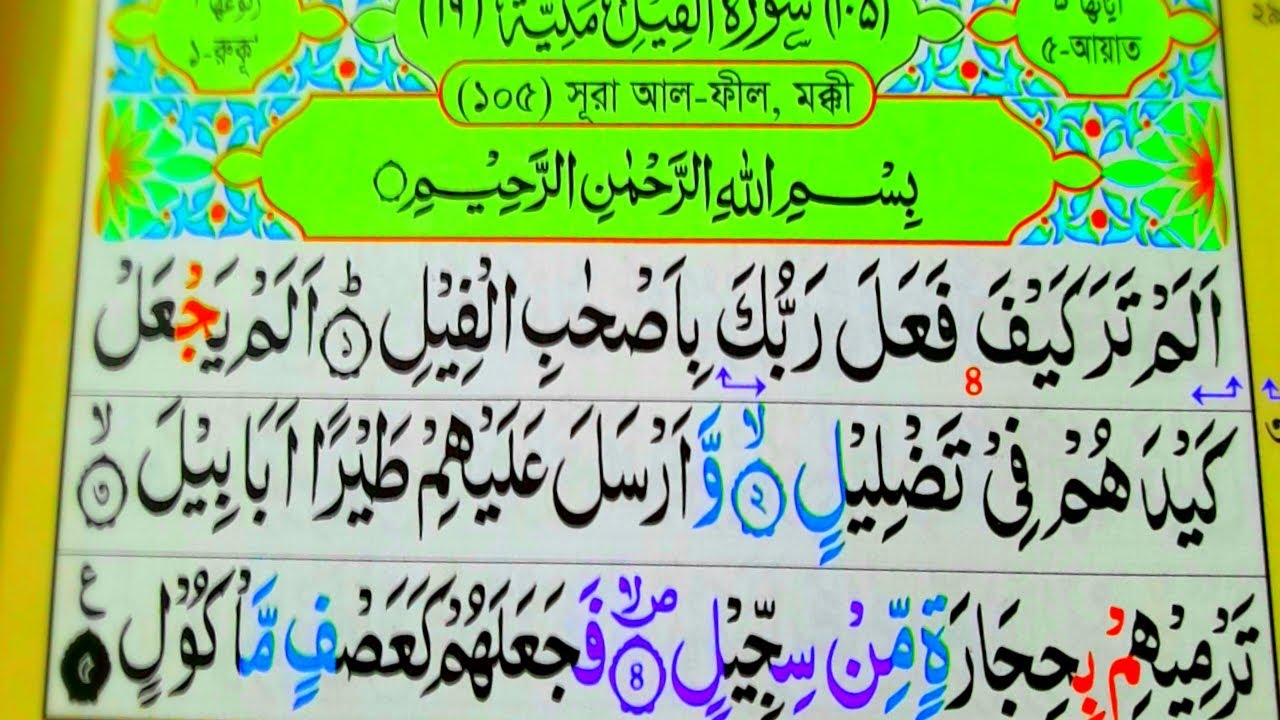 (۱۰۵) سُوْرَةُ الْفِيْلِ مَكِّيَّةٌ (۱۹)
১-রুকূ'
৫-আয়াত
(১০৫) সূরা আল-ফীল, মক্কী
بِسْمِ اللهِ الرَّحْمٰنِ الرَّحِيْمِ ○
اَلَمْ تَرَ كَيْفَ فَعَلَ رَبُّكَ بِاَصْحٰبِ الْفِيْلِ ؕ ۝১ اَلَمْ يَجْعَلْ
8
كَيْدَهُمْ فِيْ تَضْلِيْلٍ ۙ ۝২ وَّاَرْسَلَ عَلَيْهِمْ طَيْرًا اَبَابِيْلَ ۙ ۝৩
تَرْمِيْهِمْ بِحِجَارَةٍ مِّنْ سِجِّيْلٍ ۝৪ فَجَعَلَهُمْ كَعَصْفٍ مَّاْكُوْلٍ ۝৫ ع